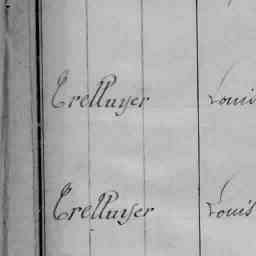 Trelluyer Louis
Trelluyer Louis